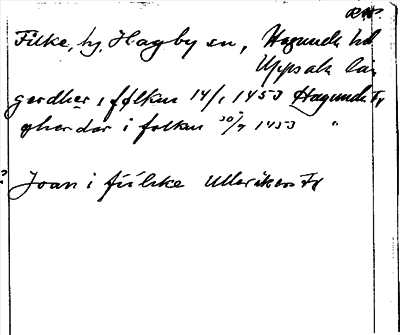 Filke, by, Hagby sn, Hagunda hd
Uppsala län
gerdher i følkin 14/1 1453 Hagunda Fr
gherdar i folkin 30/7 1453 "
? Joan i fúlske Ulleråkers Fr